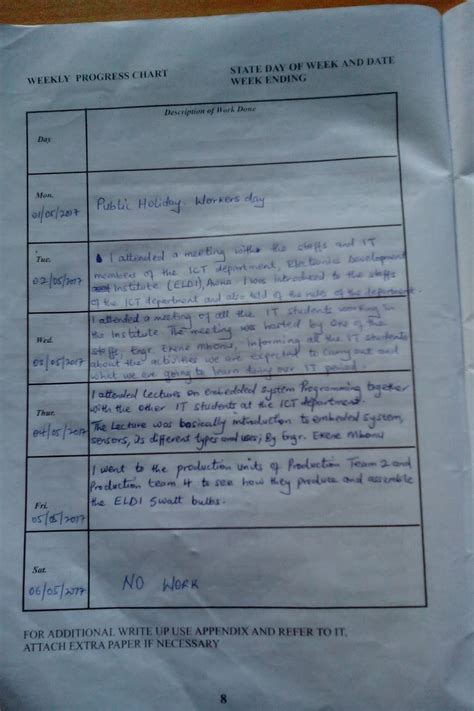 WEEKLY PROGRESS CHART
STATE DAY OF WEEK AND DATE
WEEK ENDING
Day
Description of Work Done
Mon.
01/05/2017
Public Holiday. Workers day
Tue.
02/05/2017
I attended a meeting with the staffs and IT
members of the ICT department, Electronics Development
Institute (ELDI), Awka. I was introduced to the staffs
of the ICT department and also told of the rules of the department.
Wed.
03/05/2017
I attended a meeting of all the IT students working in
the Institute. The meeting was hosted by one of the
staffs, Engr. Ekene Mbonu, informing all the IT students
about the activities we are expected to carry out and
what we are going to learn during our IT period.
Thur.
04/05/2017
I attended Lectures on embedded system Programming together
with the other IT students at the ICT department.
The Lecture was basically introduction to embedded system,
sensors, its different types and uses; By Engr. Ekene Mbonu
Fri.
05/05/2017
I went to the production units of Production Team 2 and
Production team 4 to see how they produce and assemble
the ELDI 5watt bulbs.
Sat.
06/05/2017
NO WORK
FOR ADDITIONAL WRITE UP USE APPENDIX AND REFER TO IT,
ATTACH EXTRA PAPER IF NECESSARY
8